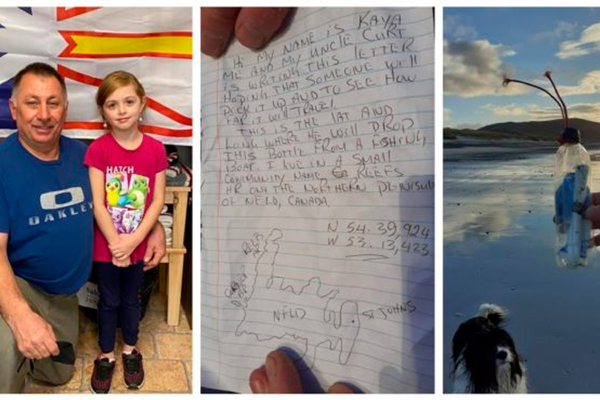 OAKLEY
HATCH
Hi MY NAME iS KAYA
ME AND MY UNCLE CURT
iS WRITING THIS LETTER
HOPING THAT SOMEONE WE'LL
PICK iT UP AND TO SEE HOW
FAR iT Will TRAVEL.
THIS iS THE LAT AND
LONG WHERE HE Will DROP
THIS BOTTLE FROM A FSHRING,
BOAT. I LIVE IN A SMALL
COMMUNITY NAME REEFS
HR ON THE NORTHERN PENiSULA
OF NFLD, CANADA.
N 54. 39,924
W 53. 13,423
NFLD
ST JOHNS